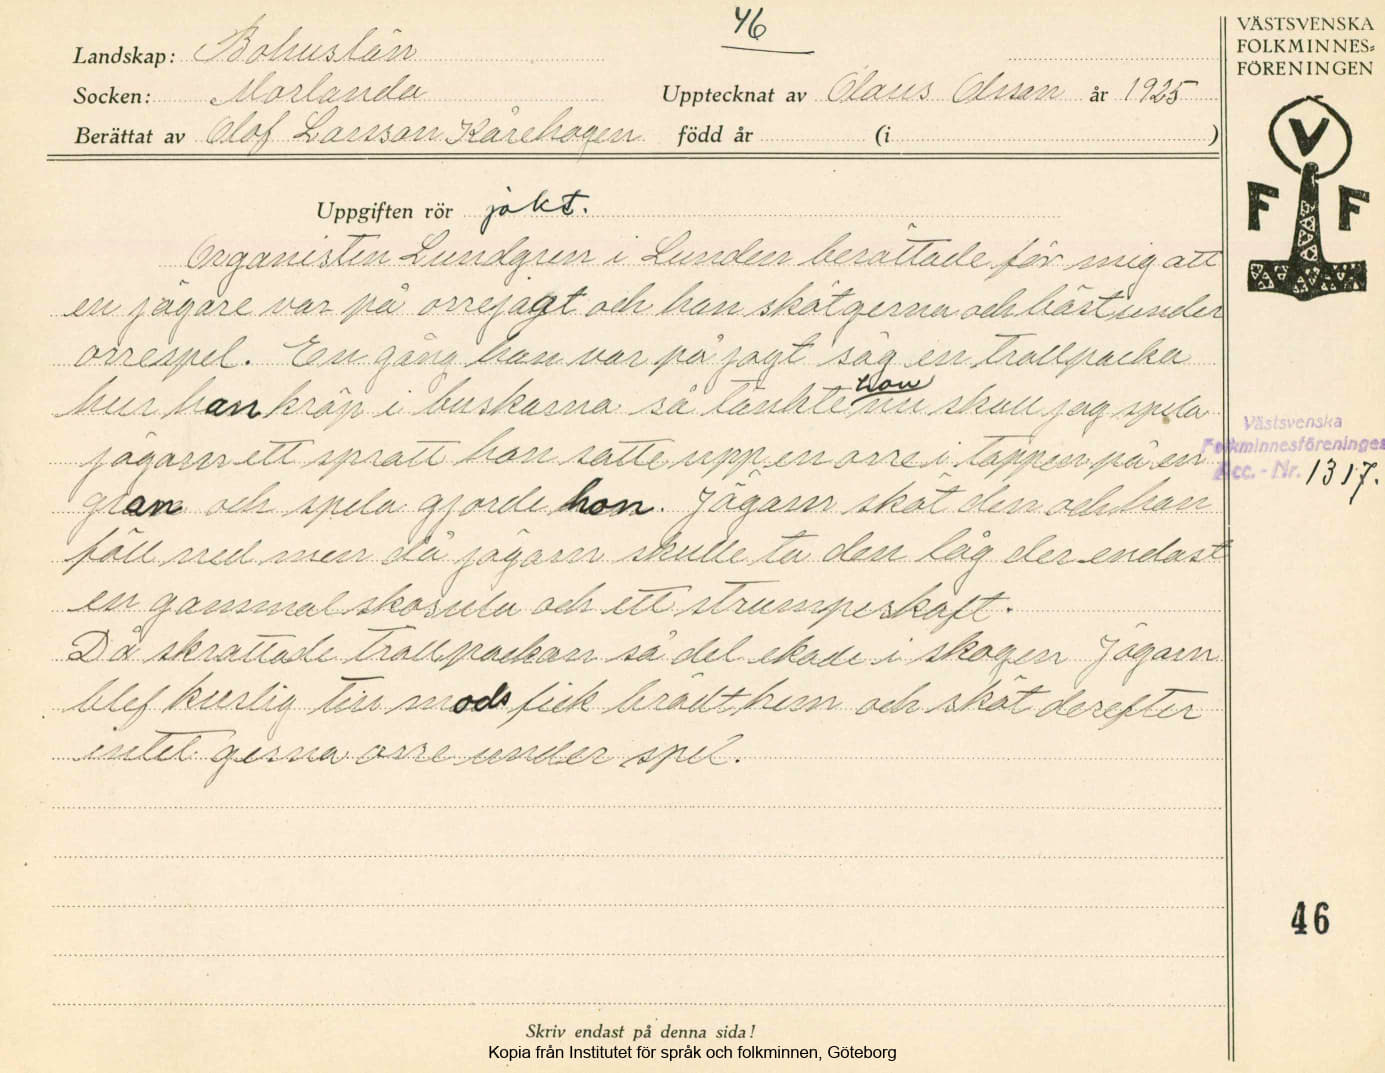 46
Landskap: Bohuslän
Socken: Morlanda
Upptecknat av Olaus Olsson år 1925
Berättat av Olof Larsson Kårehogen född år (i )
VÄSTSVENSKA
FOLKMINNES=
FÖRENINGEN
V
F F
Uppgiften rör jakt.
Organisten Lundgren i Lunden berättade för mig att
en jägare var på orrejagt och han sköt gerna och bäst under
orrespel. En gång han var på jagt såg en trollpacka
hur han kröp i buskarna så tänkte hon nu skall jag spela
jägarn ett spratt hon satte upp en orre i toppen på en
gran och spela gjorde hon. Jägarn sköt den och han
föll ned men då jägarn skulle ta den låg der endast
en gammal skosula och ett strumpeskaft.
Då skrattade trollpackan så det ekade i skogen Jägarn
blef kuslig till mods fick brådt hem och sköt derefter
intet gerna orre under spel.
Västsvenska
Folkminnesföreninges
Acc. - Nr. 1317.
46
Skriv endast på denna sida!
Kopia från Institutet för språk och folkminnen, Göteborg